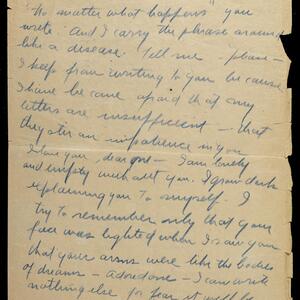 "No matter what happens" you
write. And I carry the phrase around
like a disease. Tell me - please -
I keep from writing to you because
I have become afraid that my
letters are insufficient - that
they stir an impatience in you
I love you, dear one - I am lonely
and empty without you. I grow dark
explaining you to myself. I
try to remember only that your
face was lighted when I saw you
that your arms were like the bodies
of dreams - adored one - I can write
nothing else for fear it will be